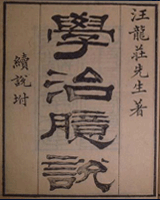 汪龍莊先生著
學治臆說
續說坿